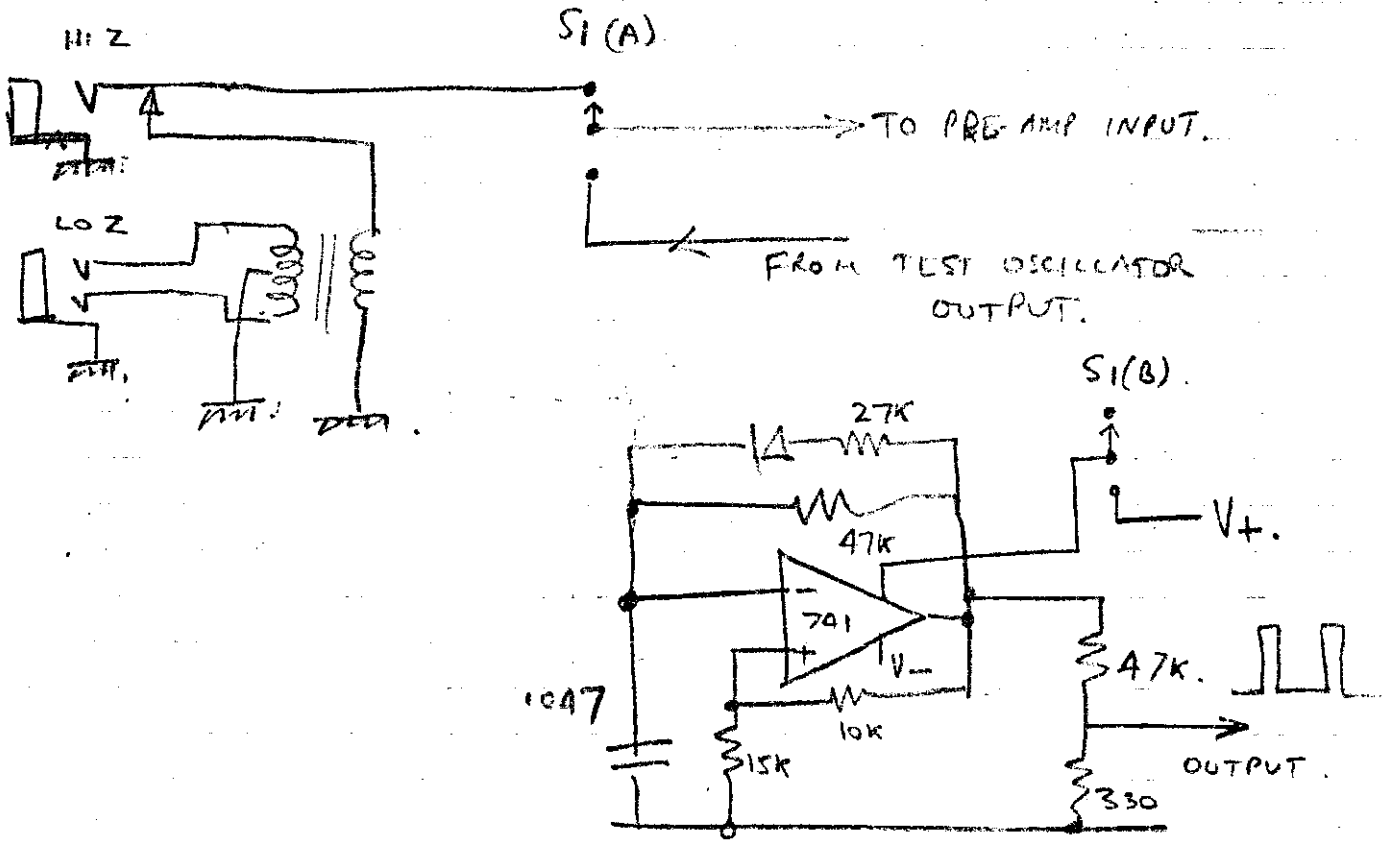 HI Z
S1 (A)
TO PRE-AMP INPUT.
LO Z
FROM TEST OSCILLATOR
OUTPUT.
S1(B).
27K
47K
V+.
741
V-
47K.
.047
10K
15K
OUTPUT.
330